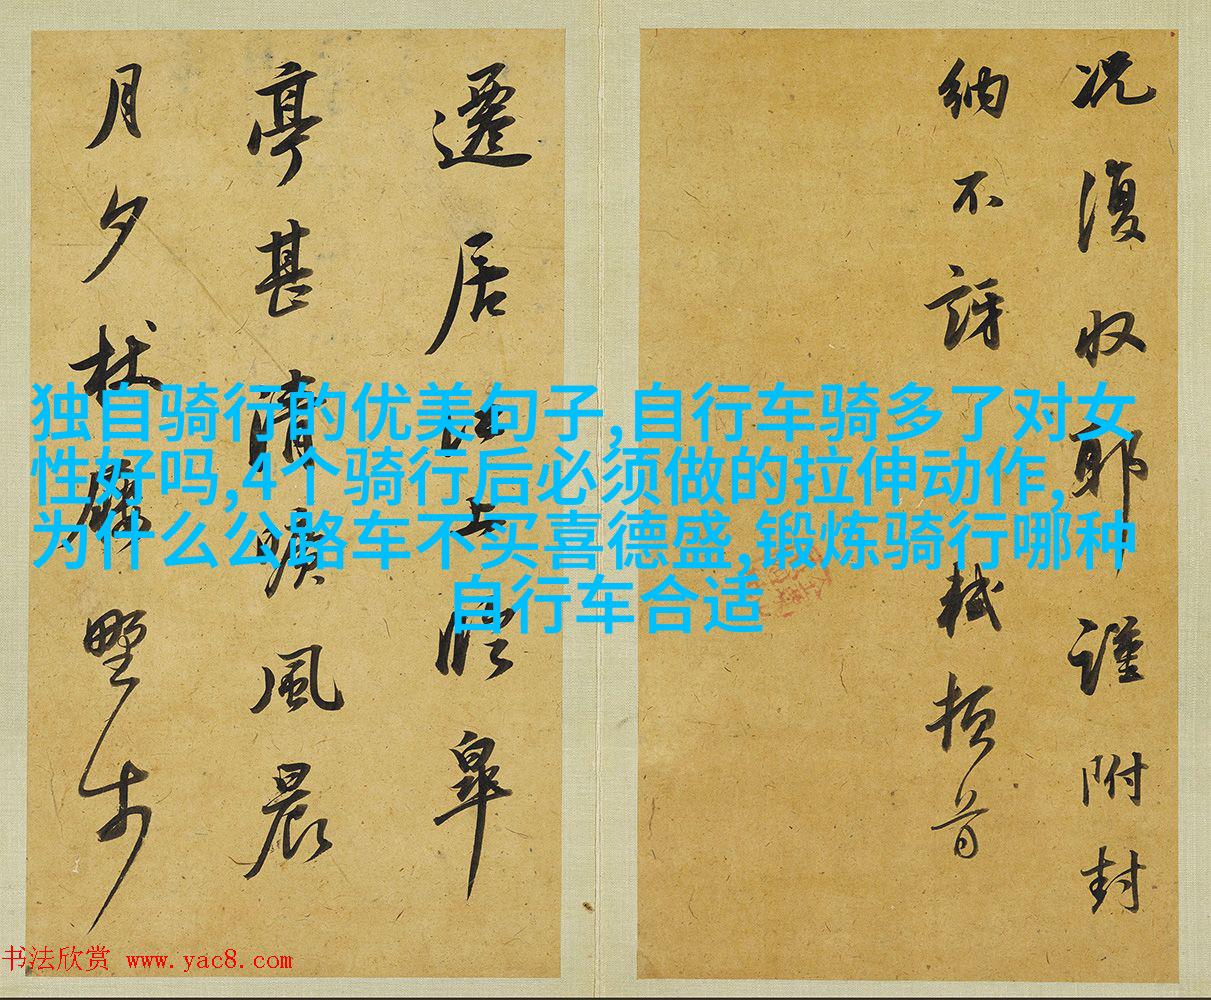 况復収耶謹附封
納不訝軾頓首
遷居江上臨皋
亭甚清曠風晨
月夕杖屨野步
独自骑行的优美句子,自行车骑多了对女
性好吗,4个骑行后必须做的拉伸动作,
为什么公路车不买喜德盛,锻炼骑行哪种
自行车合适
书法欣赏 www.yac8.com